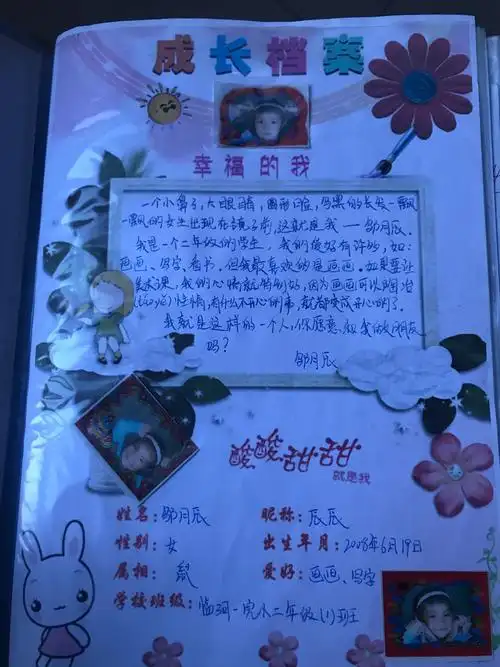 成长档案
幸福的我
一个小鼻子,大眼睛,圆形脸,乌黑的长发一飘
一飘的女生出现在镜子前,这就是我——邹月辰。
我是一个二年级的学生,我的爱好有许多,如:
画画、写字、看书。但我最喜欢的是画画。如果要让
美术课,我的心情就特别好,因为画画可以陶冶
(táo yě)性情,有什么不开心的事,就都变成开心的了。
我就是这样的一个人,你愿意和我做朋友
吗?
邹月辰
酸酸甜甜
就是我
姓名:邹月辰 昵称:辰辰
性别:女 出生年月:2008年6月19日
属相:鼠 爱好:画画、写字
学校班级:临洞一完小二年级(1)班